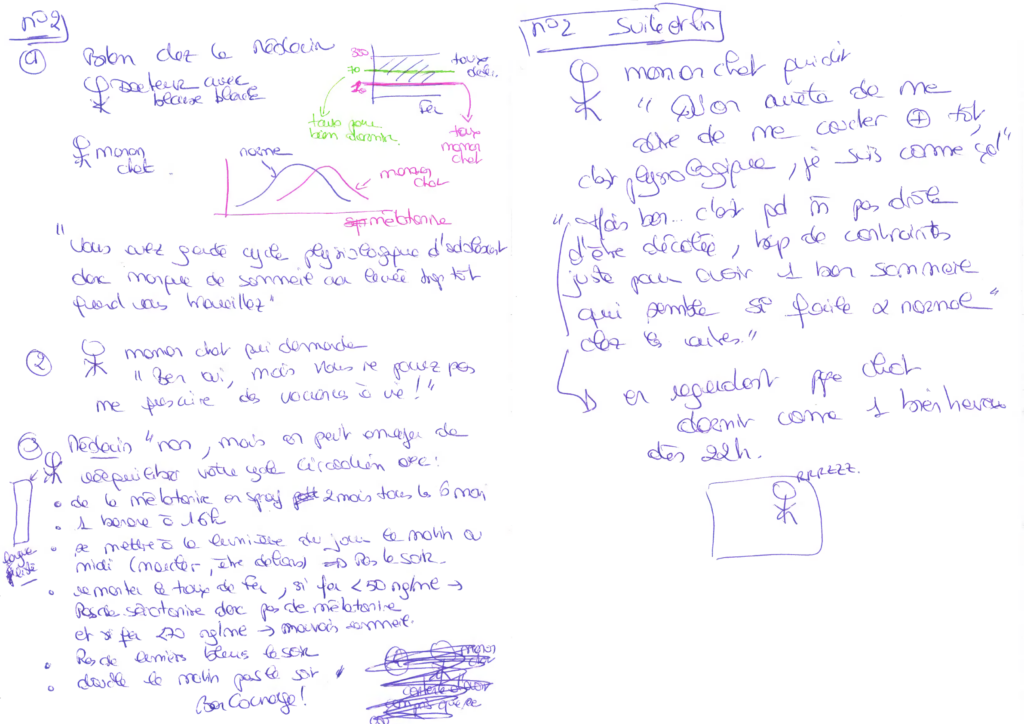 n°2
① Bilan chez le Médecin
Docteur avec
blouse blanche
300
70
taux
Fer
taux pour
bien dormir
taux
maman
chat
maman
chat
norme
maman
chat
mélatonine
"Vous avez gardé cycle physiologique d'adolescent
donc manque de sommeil car levée trop tôt
quand vous travaillez"
② maman chat qui demande
"Ben oui, mais vous ne pouvez pas
me prescrire des vacances à vie !"
③ Médecin "non, mais on peut essayer de
rééquilibrer votre cycle circadien avec :
• de la mélatonine en spray 2 mois tous les 6 mois
• 1 banane à 16h
• se mettre à la lumière du jour le matin ou
midi (marcher, être dehors) ⇒ Pas le soir.
• remonter le taux de fer, si fer < 50 ng/ml →
Pas de sérotonine donc pas de mélatonine
et si fer < 70 ng/ml → mauvais sommeil.
• Pas de lumières bleues le soir
• douche le matin pas le soir
Bon Courage !
longue
liste
n°2 suite et fin
maman chat qui dit
"Qu'on arrête de me
dire de me coucher ⊕ tôt,
c'est physiologique, je suis comme ça !"
"Mais bon... c'est qd m̂ pas drôle
d'être décalée, trop de contraintes
juste pour avoir 1 bon sommeil
qui semble si facile & normal
chez les autres."
→ en regardant papa chat
dormir comme 1 bienheureux
dès 22h.
RRRZZZ.